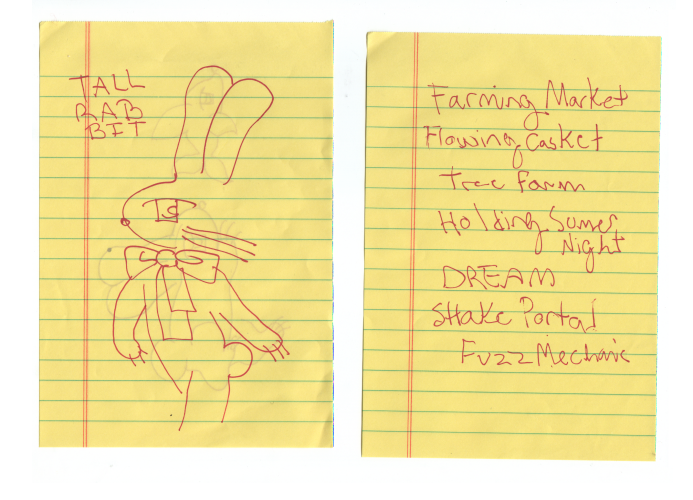 TALL
RAB
BIT
Farming Market
Flowing Casket
Tree Farm
Holding Sumer
Night
DREAM
SHake Portal
Fuzz Mechanic